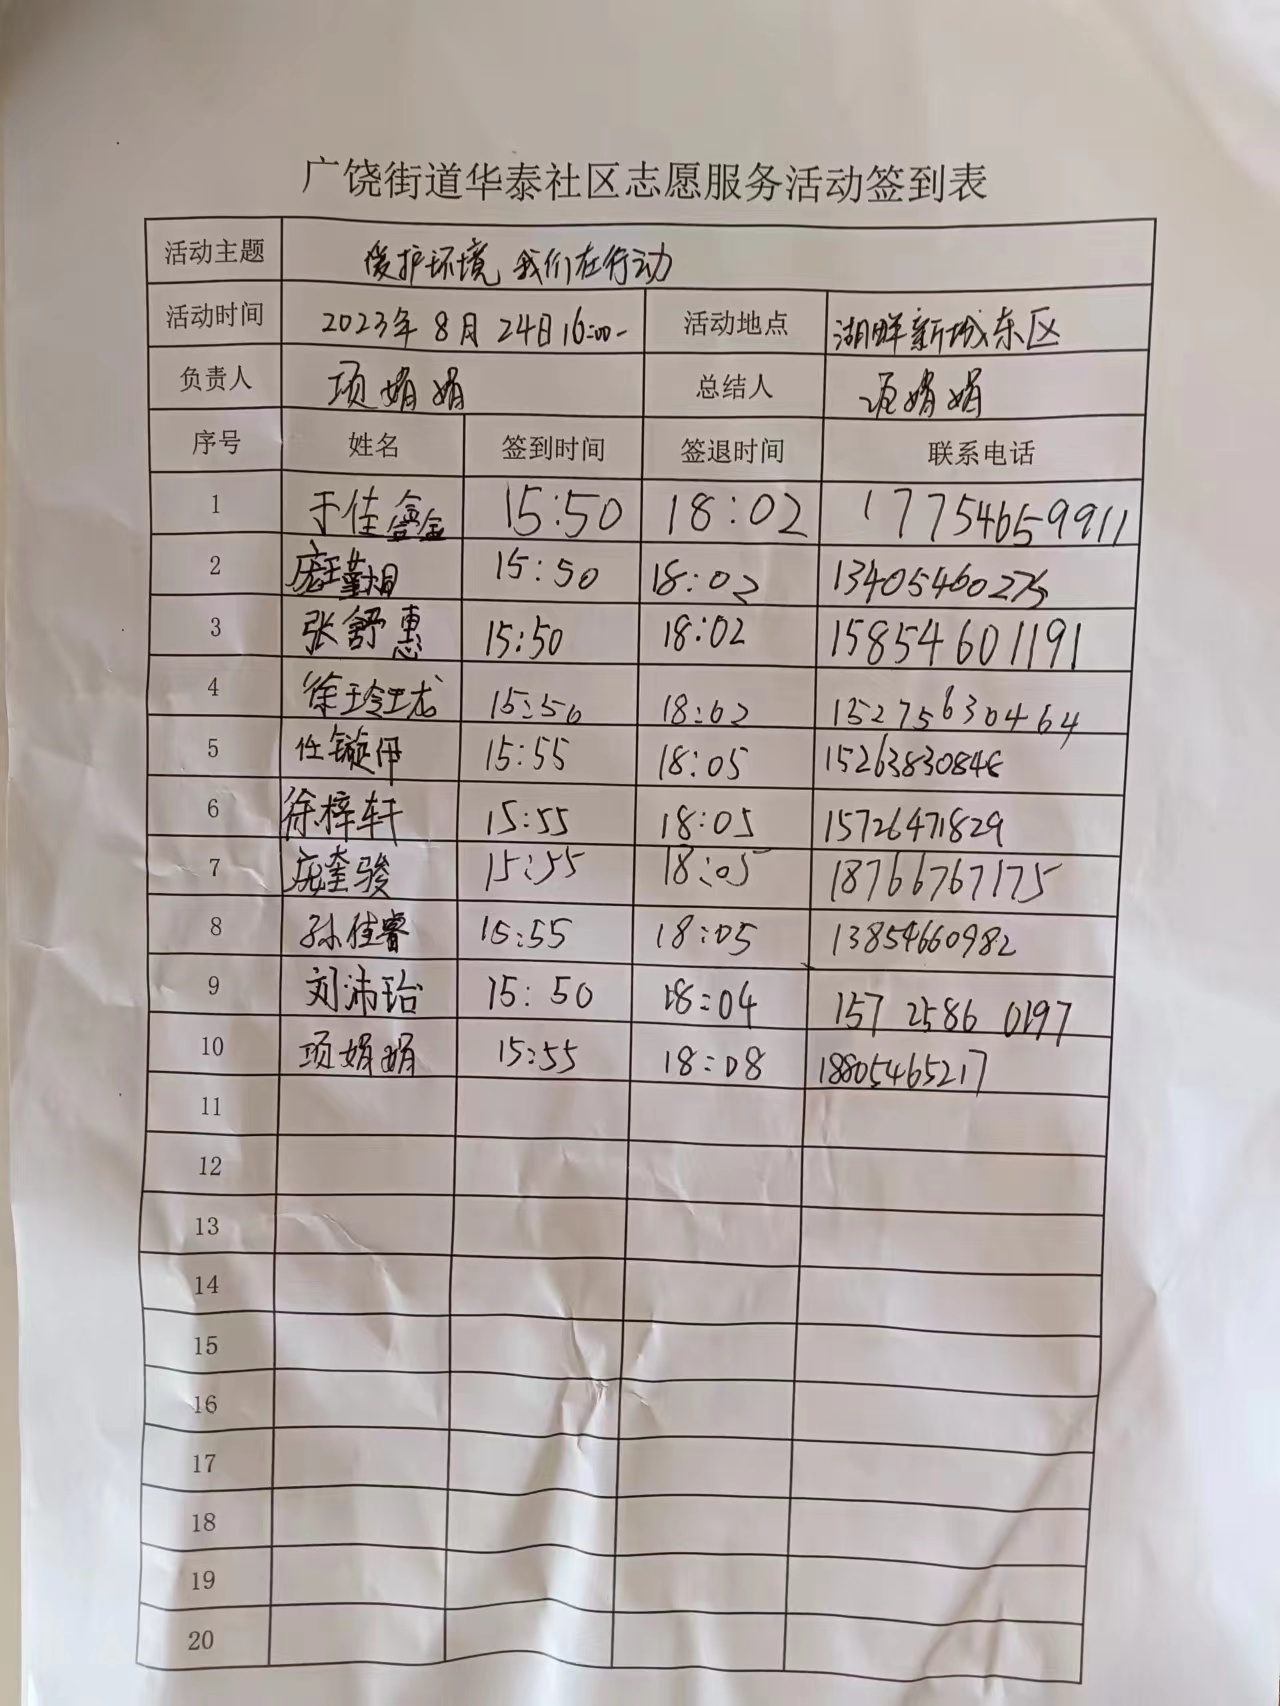 广饶街道华泰社区志愿服务活动签到表
活动主题 爱护环境,我们在行动
活动时间 2023年8月24日16:00- 活动地点 湖畔新城东区
负责人 项娟娟 总结人 项娟娟
序号 姓名 签到时间 签退时间 联系电话
1 于佳 15:50 18:02 17754659911
2 15:50 18:02 13405460275
3 张舒惠 15:50 18:02 15854601191
4 徐玉玲珑 15:50 18:02 15275630464
5 任镟伊 15:55 18:05 15263830846
6 徐梓轩 15:55 18:05 15726471829
7 庞奎骏 15:55 18:05 18766767175
8 孙佳睿 15:55 18:05 13854660982
9 刘沛珆 15:50 18:04 157 2586 0197
10 项娟娟 15:55 18:08 18805465217
11
12
13
14
15
16
17
18
19
20